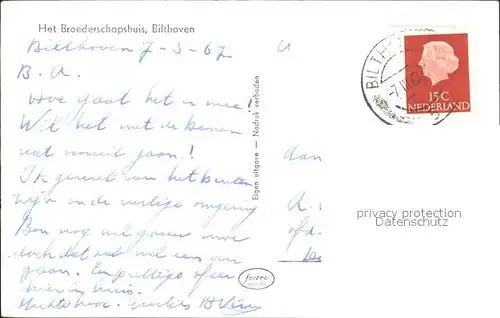 Het Broederschapshuis, Bilthoven
Bilthoven 7-3-67
B. A.
Hoe gaat het u mee?
Wil het met de benen
wat vooruit gaan!
Ik geniet van het buiten
zijn in de rustige omgeving
Ben nog wel gauw moe
doch dat zal wel een over
gaan. En prettige sfeer
hier in huis.
Eigen uitgave — Nadruk verboden
fotru
Aan
A.
afd.
BILTHOVEN
15 C
NEDERLAND
privacy protection
Datenschutz